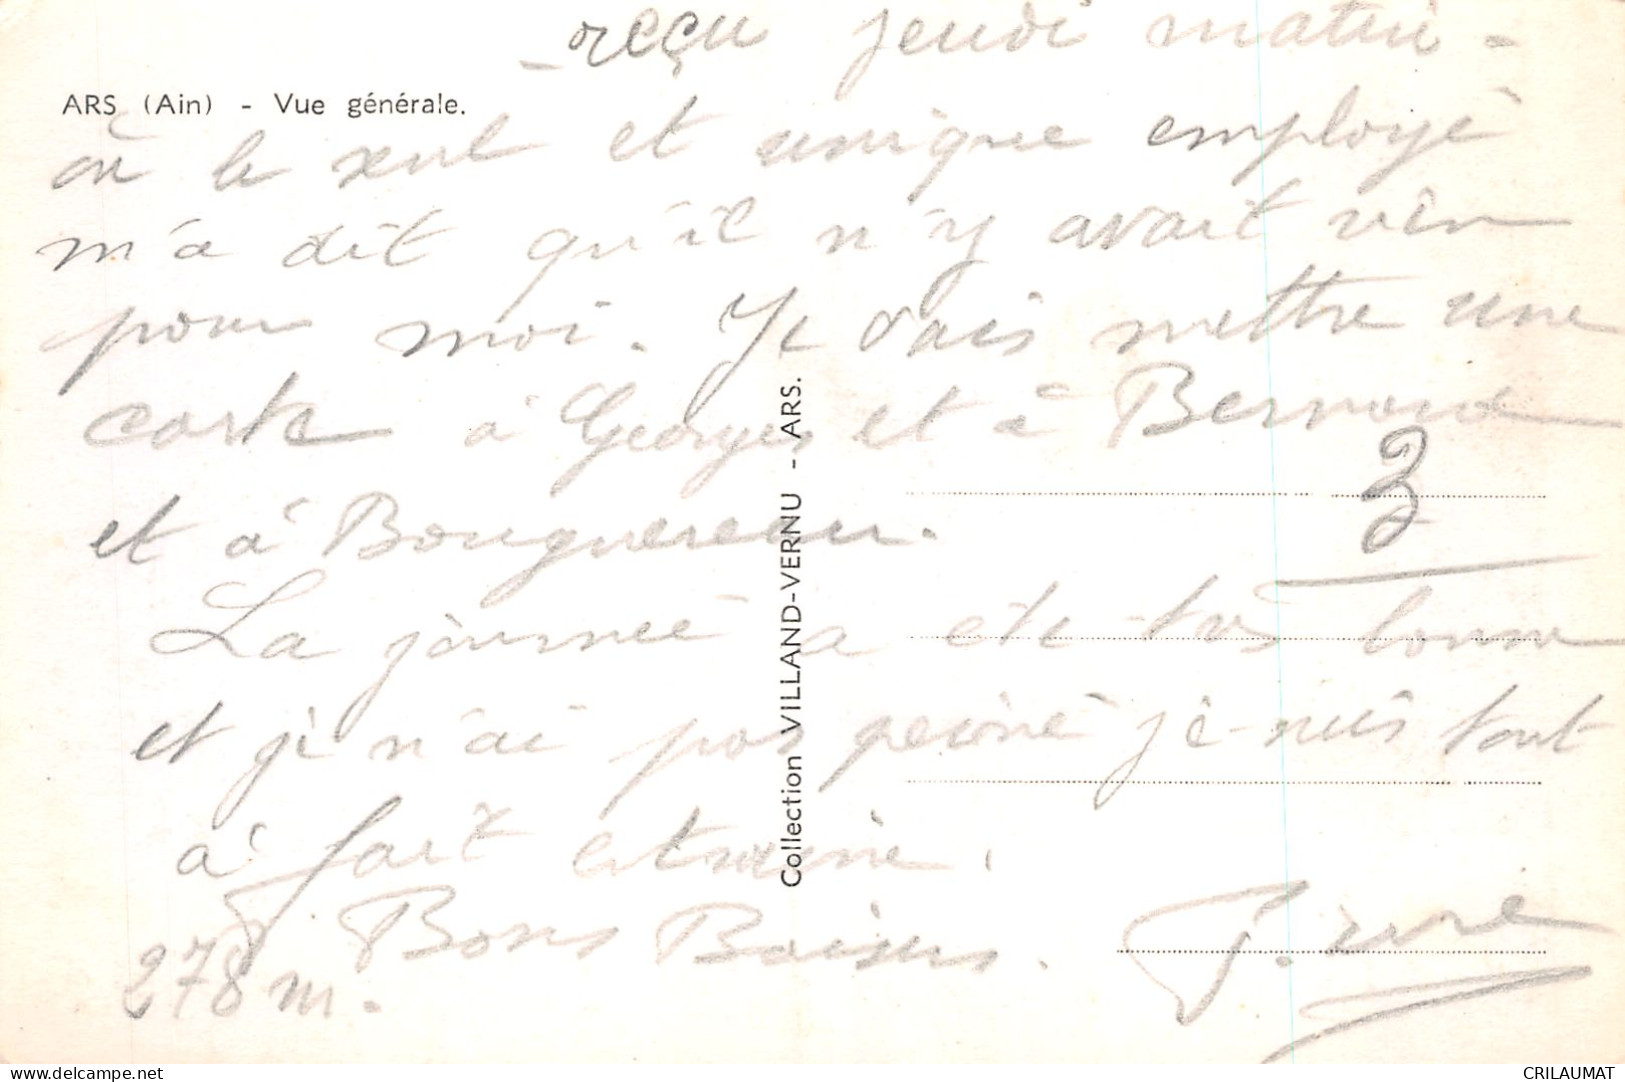 - reçu jeudi matin -
ARS (Ain) - Vue générale.
où le seul et unique employé
m'a dit qu'il n'y avait rien
pour moi. Je vais mettre une
carte à Georges et à Bernard
et à Bouguereau.
3
La journée a été très bonne
et je n'ai pas peiné je suis tout
à fait
Bons Baisers.
278 m.
Collection VILLAND-VERNU - ARS.
delcampe.net
CRILAUMAT